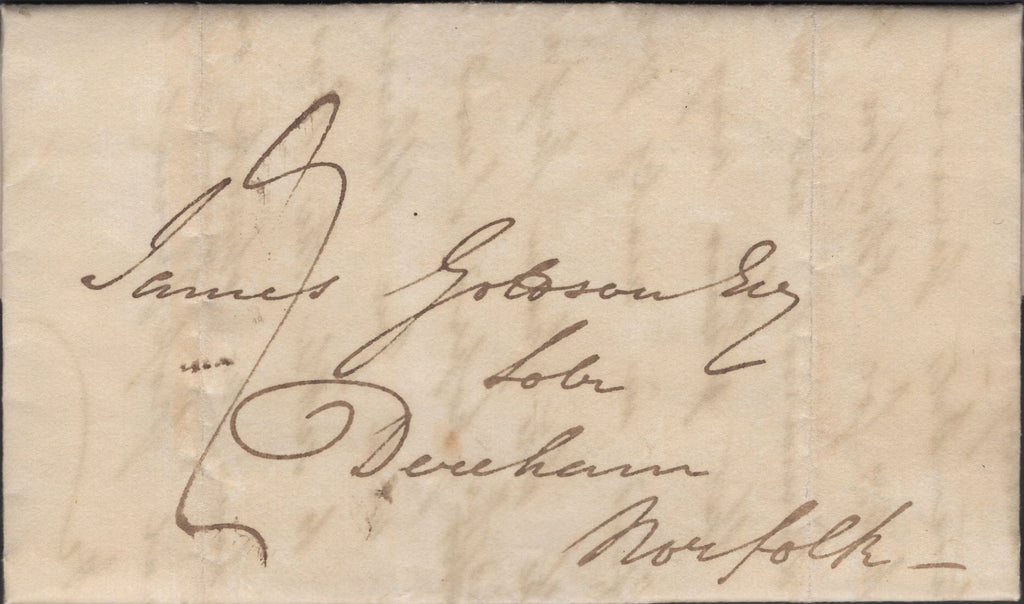 James Goldson Esq
Solr
Dereham
Norfolk –